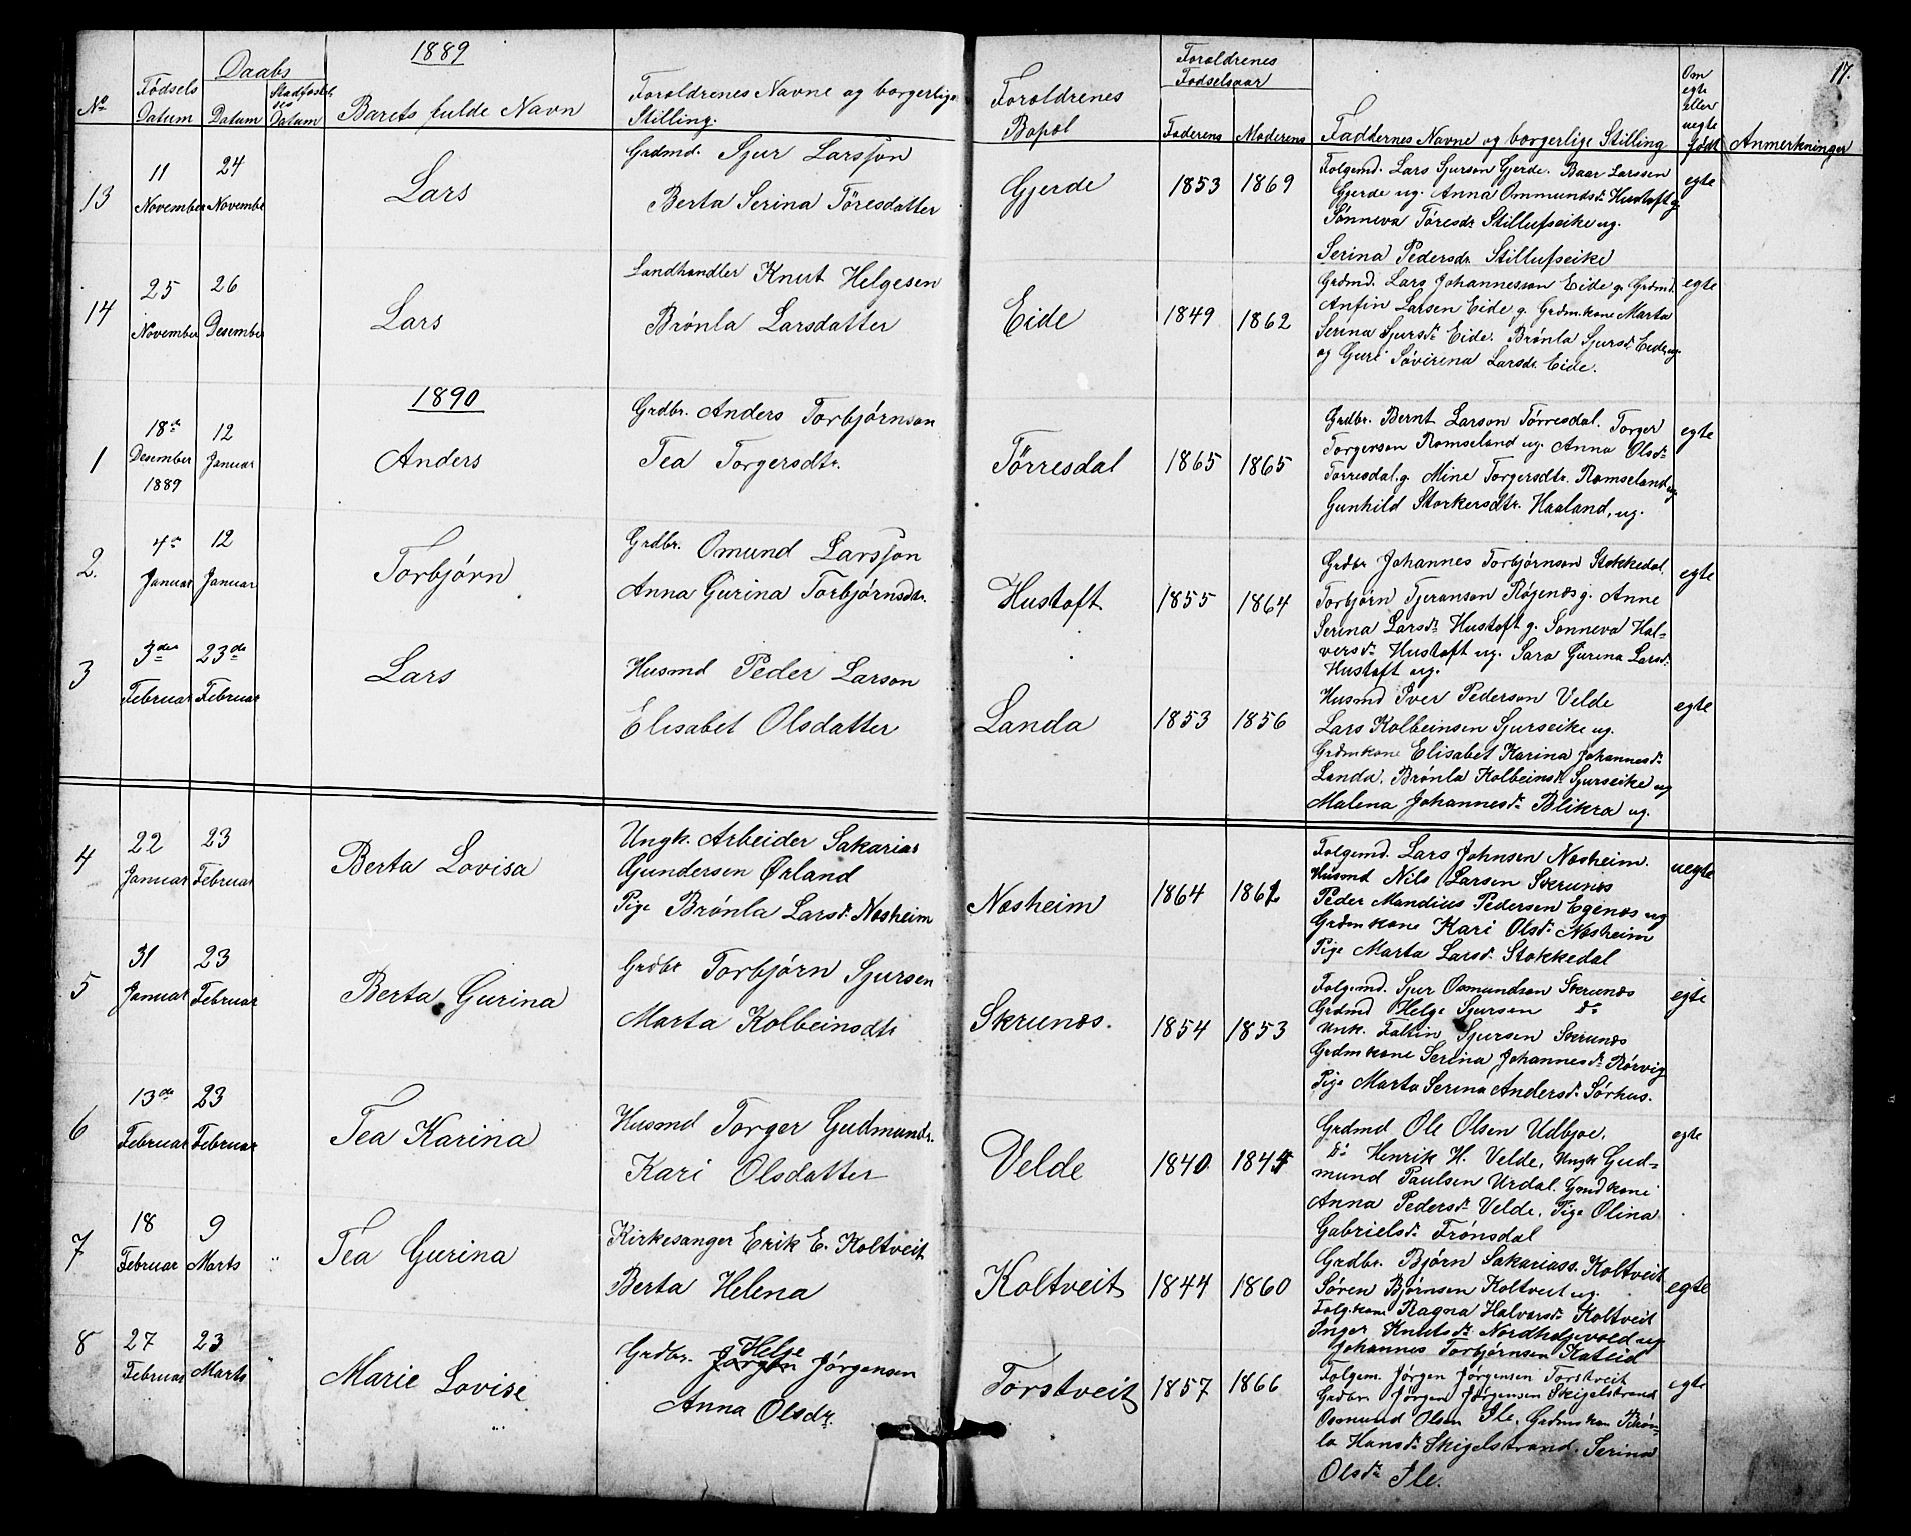 17.
1889
No
Fødsels Datum
Daabs
Datum
Datum
Barets fulde Navn
Foroldrenes Navne og borgerlige Stilling.
Foroldrenes Bopol
Foroldrenes Fødselsaar
Faderens
Moderens
Faddernes Navne og borgerlige Stilling
Om egte eller uegte født
Anmerkninger
13
11 November
24 Novembe
Lars
Grdmd. Sjur Larsson
Berta Serina Töresdatter
Gjerde
1853
1869
Folgemd. Lars Sjurson Gjerde. Baar Larssen
Gjerde ug. Anna Ommundsdr Hustoft g.
Sønneva Töresdr Stillufseike ug.
Serina Pedersdr. Stillufseike
egte
14
25 November
26 Desember
Lars
Landhandler Knut Helgesen
Brønla Larsdatter
Eide
1849
1862
Grdmd. Lars Johannesson Eide g. Grdmd.
Anfin Larsen Eide g. Grdmkone Marta
Serina Sjursdr Eide. Brønla Sjursdr Eide ug.
og Guri Søvirina Larsdr. Eide.
egte
1890
1
18de Desember 1889
12 Januar
Anders
Grdbr. Anders Torbjørnson
Tea Torgersdtr.
Tørresdal
1865
1865
Grdbr. Bernt Larson Tørresdal. Torger
Torgerson Romseland ug. Anna Olsdr
Torresdal. g. Mine Torgersdtr. Romseland ug.
Gunhild Storkersdtr. Haaland, ug.
egte
2.
4de Januar
12 Januar
Torbjørn
Grdbr. Omund Larsson
Anna Gurina Torbjørnsdtr.
Hustoft
1855
1864
Grdbr Johannes Torbjørnson Stokkedal.
Torbjørn Tjeranson Røgenes g. Anne
Serina Larsdr Hustoft g. Sonneva Hal-
versdr Hustoft ug. Sara Gurina Larsdr.
Hustoft ug.
egte
3
3den Februar
23de Februar
Lars
Husmd Peder Larson
Elisabet Olsdatter
Landa
1853
1856
Husmd Iver Pederson Velde
Lars Kolbeinsen Sjurseike ug.
Grdmkone Elisabet Karina Johannesdr
Landa. Brønla Kolbeinsdr Sjurseike ug
Malena Johannesdr Blikra ug.
egte
4
22 Januar
23 Februar
Berta Lovisa
Ungk. Arbeider Sakarias
Gundersen Ørland
Pige Brønla Larsdr. Nosheim
Nosheim
1864
Folgemd. Lars Johnsen Nosheim.
Husmd Nils Larsen Skrunes
Peder Mandius Pedersen Egenes ug
Grdmkone Kari Olsdr Nosheim
Pige Marta Larsdr. Stokkedal
uegte
5
31 Januar
23 Februar
Berta Gurina
Grdbr Torbjørn Sjursen
Marta Kolbeinsdtr
Skrunes.
1854
1853
Folgemd. Sjur Osmundson Skrunes
Grdmd Helge Sjursen do
Unk. Faltin Sjursen Skrunes
Grdmkone Serina Johannesdr Rörvig
Pige Marta Serina Andersdr Sørhus.
egte
6
13de Februar
23 Februar
Tea Karina
Husmd Torger Gudmundr.
Kari Olsdatter
Velde
1840
1844
Grdmd Ole Olsen Udbjoe.
do Henrik H. Velde, Ungk Gud-
mund Paulsen Urdal. Gmdkone
Anna Pedersdr Velde, Pige Olina
Gabrielsdr Frønsdal
egte
7
18 Februar
9 Marts
Tea Gurina
Kirkesanger Erik E. Koltveit
Berta Helena
Koltveit
1844
1860
Grdbr. Bjørn Sakariass. Koltveit
Søren Bjørnsen Koltveit ug.
Folg.kone Ragna Halvorsdr Koltveit
Inger Knutsdr. Nordholgevold ug
Johannes Torbjørnsen
egte
8
27 Februar
23 Marts
Marie Lovise
Grdbr. Helge Jörgensen
Anna Olsdr.
Forstveit
1857
1866
Folgem. Jörgen Jörgensen Forstveit
Grdbr Jörgen Jörgensen Skigelstrand
Osmund Olsen Ile. Grdmskone Brøn-
la Hansdr Skigelstrand. Serina
Olsdr Ile.
egte